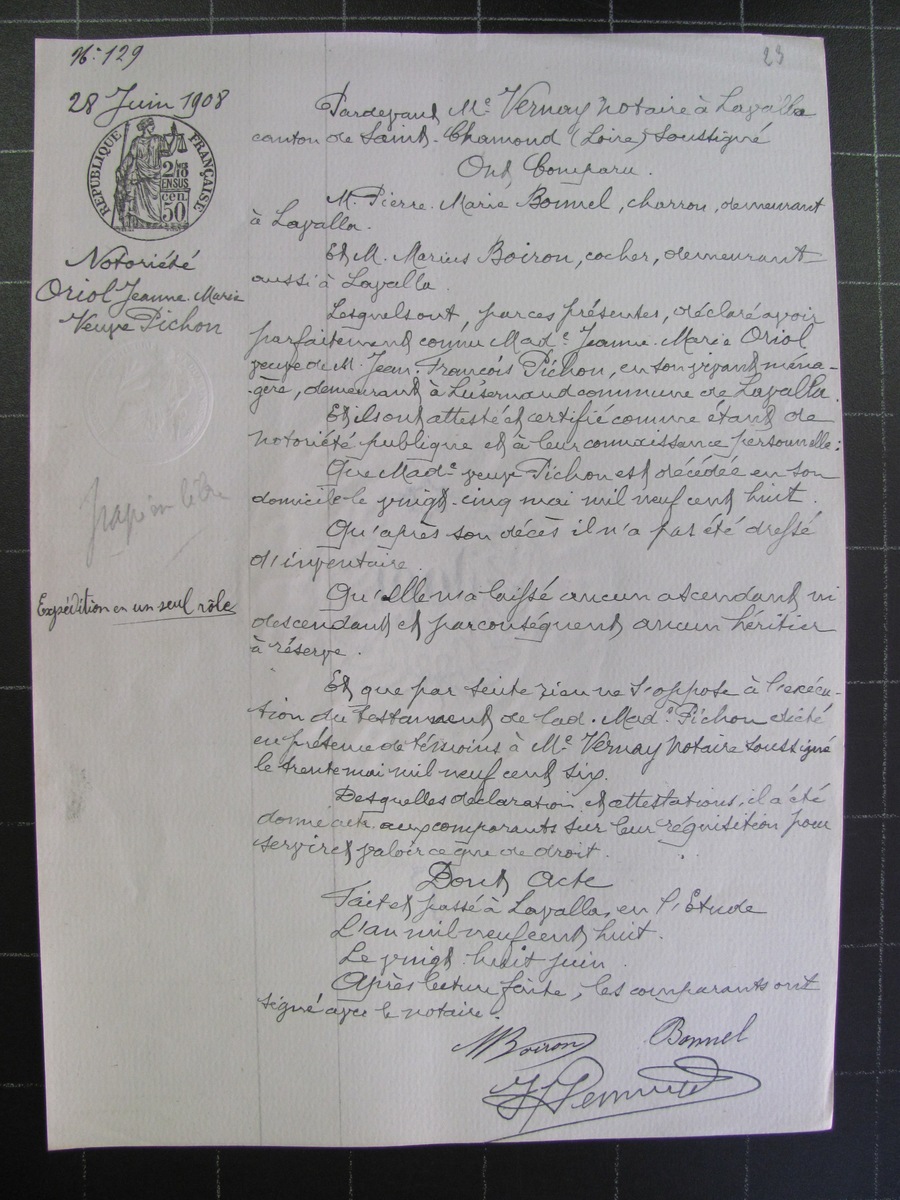 N° 129
23
28 Juin 1908
RÉPUBLIQUE FRANÇAISE
2/10
EN SUS
50
cen.
Notoriété
Oriol Jeanne Marie
Veuve Pichon
Expédition en un seul rôle
Pardevant Me Vernay notaire à Lavalla
canton de Saint-Chamond (Loire) soussigné
Ont Comparu.
M. Pierre Marie Bonnel, charron, demeurant
à Lavalla.
Et M. Marius Boiron, cocher, demeurant
aussi à Lavalla.
Lesquels ont, par ces présentes, déclaré avoir
parfaitement connu Made Jeanne Marie Oriol
veuve de M. Jean François Pichon, en son vivant ména-
gère, demeurant à Luzernaud commune de Lavalla.
Et ils ont attesté et certifié comme étant de
notoriété publique et à leur connaissance personnelle:
Que Made veuve Pichon est décédée en son
domicile le vingt-cinq mai mil neuf cent huit.
Qu'après son décès il n'a pas été dressé
d'inventaire.
Qu'elle n'a laissé aucun ascendant ni
descendant et par conséquent aucun héritier
à réserve.
Et que par suite rien ne s'oppose à l'exécu-
tion du testament de lad. Made Pichon dicté
en présence de témoins à Me Vernay notaire soussigné
le trente mai mil neuf cent six.
Desquelles déclaration et attestations, il a été
donné acte aux comparants sur leur réquisition pour
servir et valoir ce que de droit.
Dont Acte
Fait et passé à Lavalla, en l'Etude
L'an mil neuf cent huit.
Le vingt huit juin.
Après lecture faite, les comparants ont
signé avec le notaire.
M Boiron Bonnel